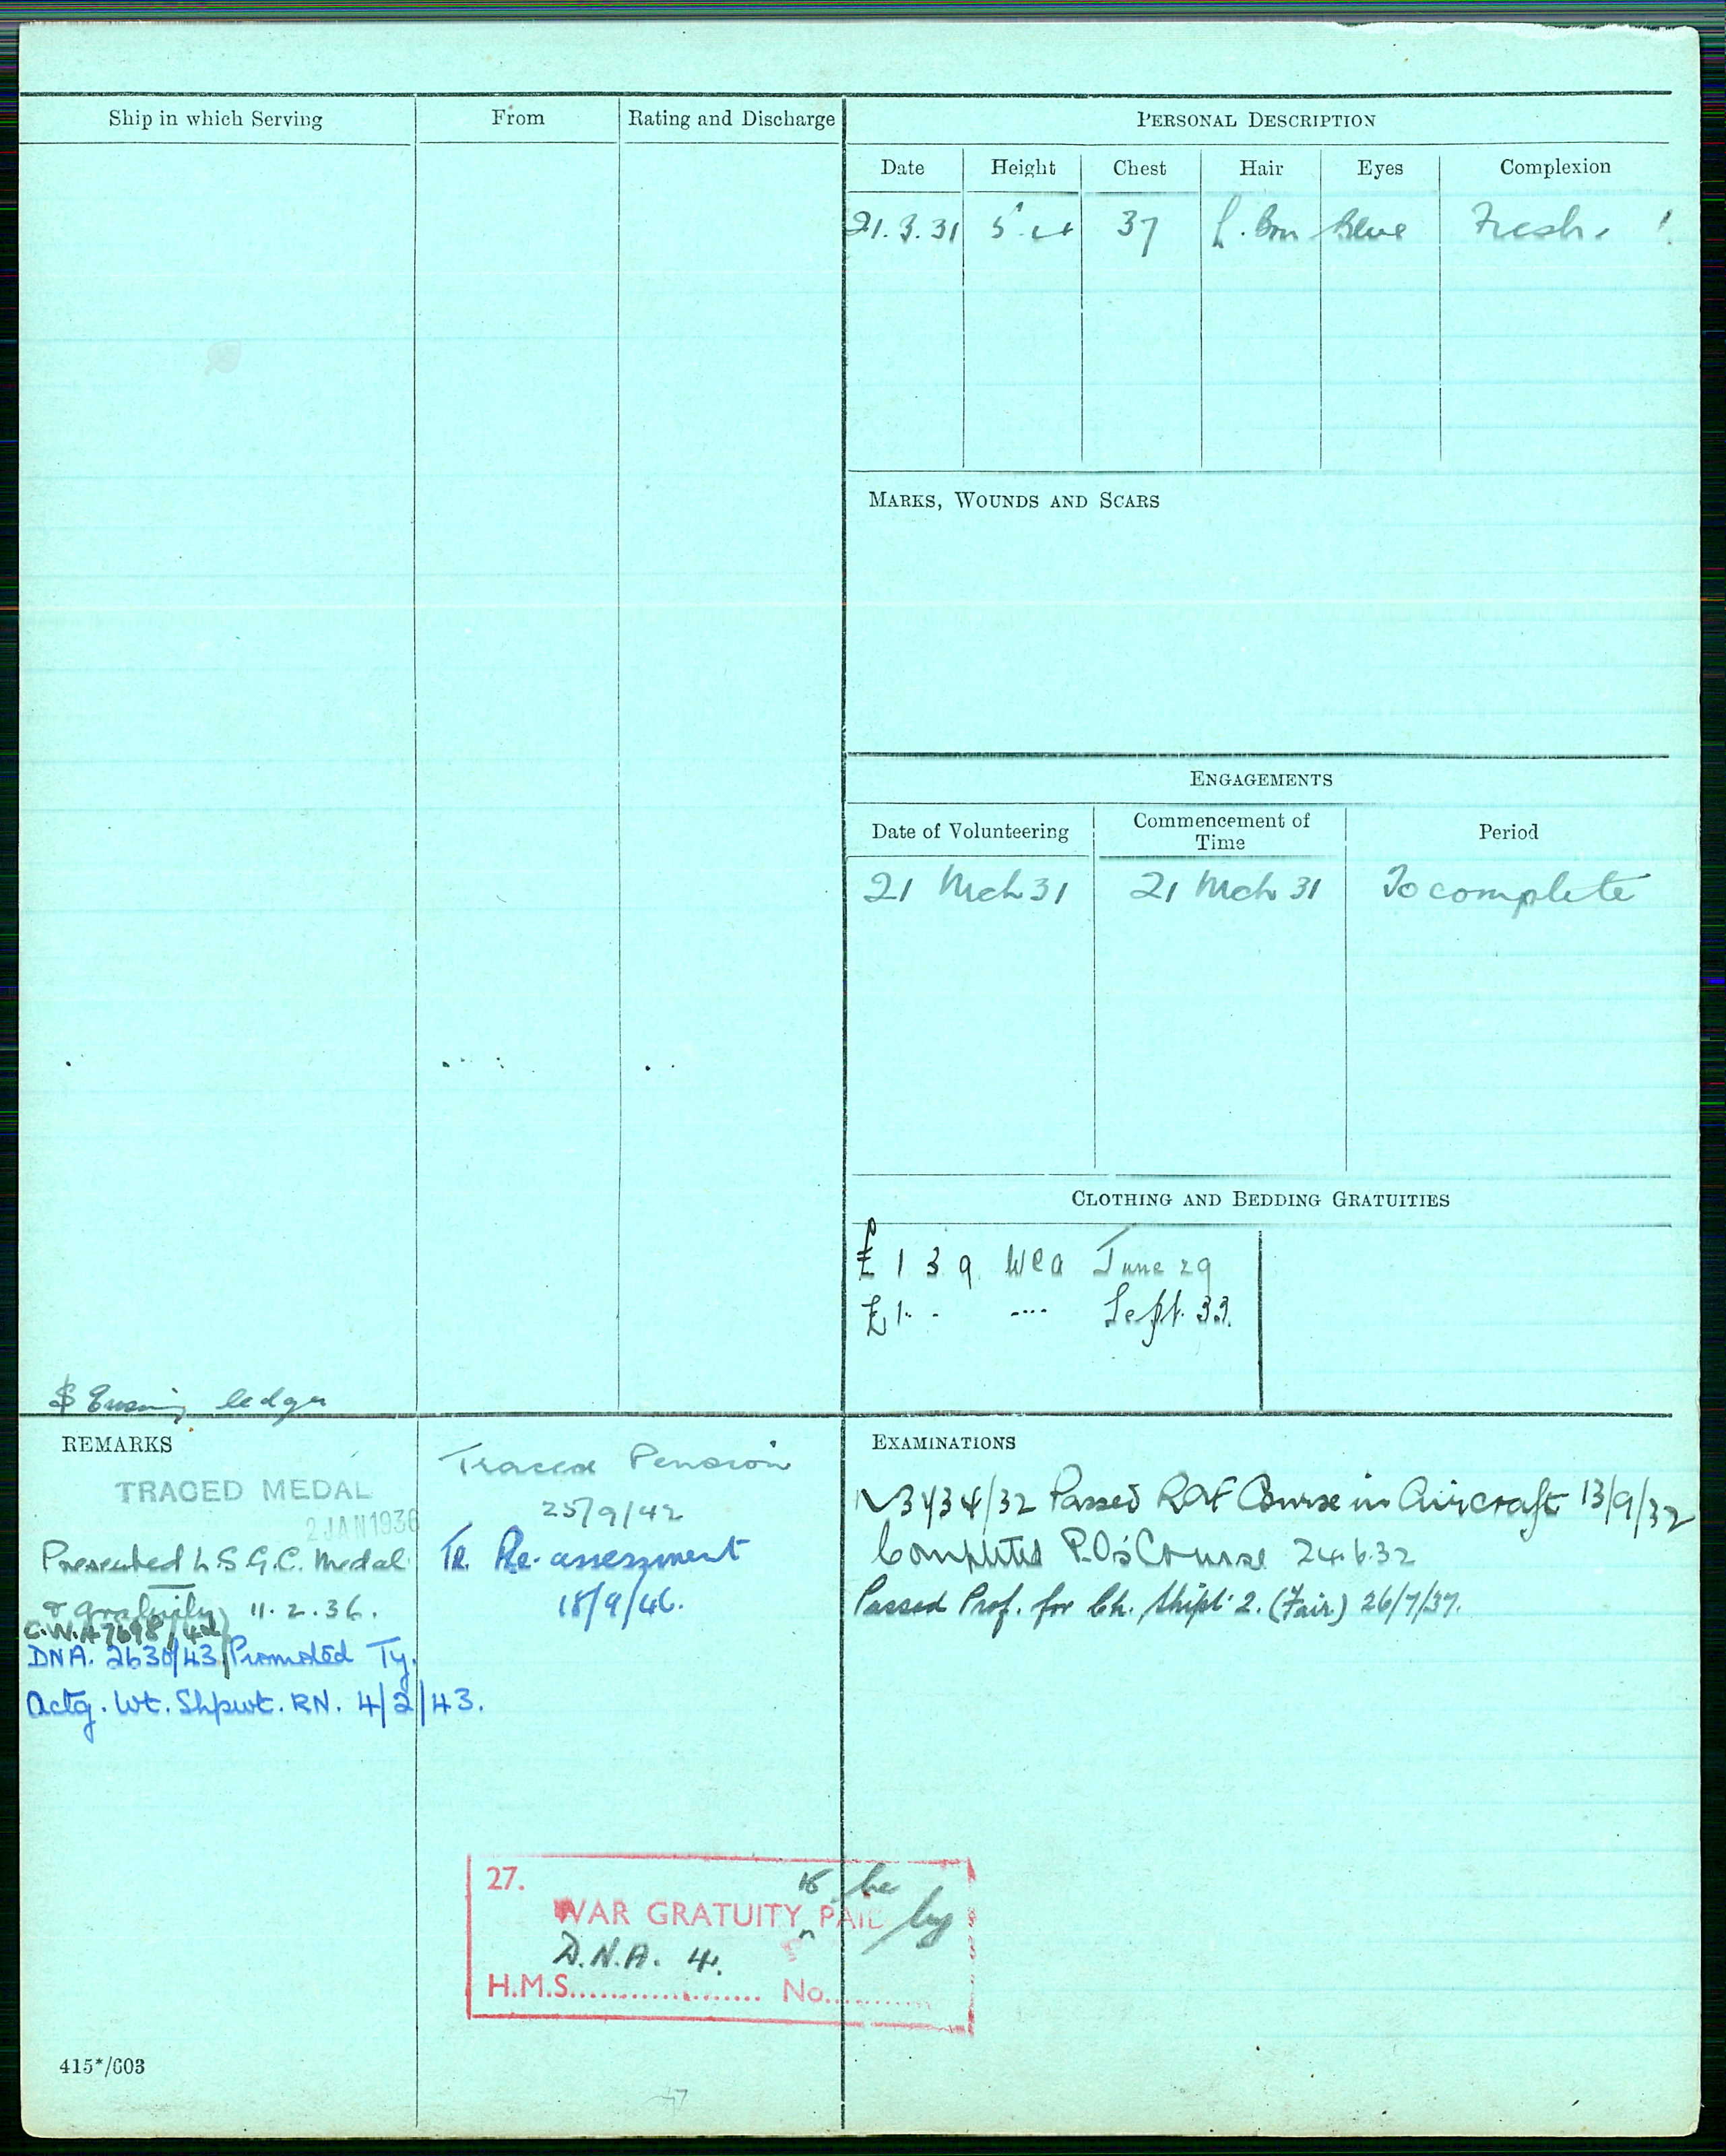 Ship in which Serving From Rating and Discharge
$ ledger
PERSONAL DESCRIPTION
Date Height Chest Hair Eyes Complexion
21.3.31 5. 37 L. Brn Blue Fresh.
MARKS, WOUNDS AND SCARS
ENGAGEMENTS
Date of Volunteering Commencement of Time Period
21 Mch 31 21 Mch 31 To complete
CLOTHING AND BEDDING GRATUITIES
£ 1 3 9 June 29
£1 . - .... Sept. 33.
REMARKS
TRACED MEDAL
2 JAN 1936
Presented L.S.G.C. Medal
& gratuity 11.2.36.
C.W.A 7698/42
DNA. 2630/43 Promoted Ty.
Actg. Wt. Shpwt. RN. 4/2/43.
Traced Pension
25/9/42
Tr. Re-assessment
18/9/46.
EXAMINATIONS
N3434/32 Passed RAF Course in Aircraft 13/9/32
Completed P.O's Course 24.6.32
Passed Prof. for Ch. Shipt. 2. (Fair) 26/7/37.
27.
WAR GRATUITY to be PAID by
D.N.A. 4.
H.M.S.................... No...........
415*/603